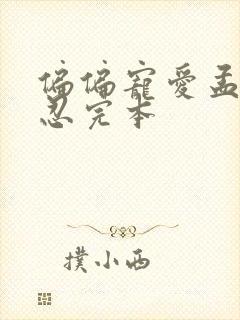 偏偏寵愛孟
忍完本
撲小西